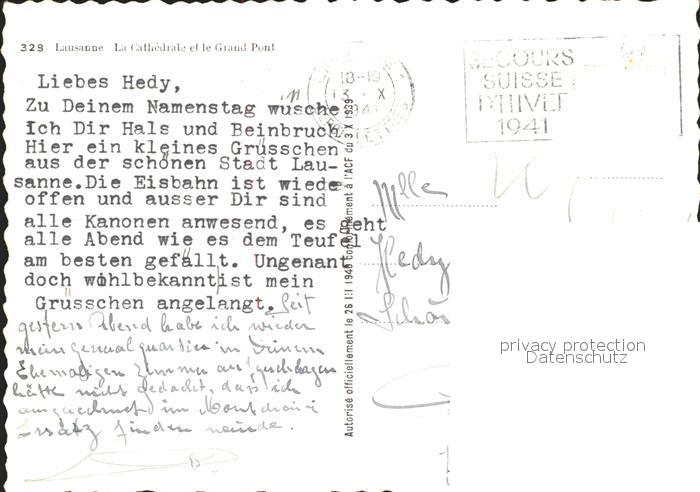 328 Lausanne La Cathédrale et le Grand Pont
Liebes Hedy,
Zu Deinem Namenstag wusche
Ich Dir Hals und Beinbruch
Hier ein kleines Grüsschen
aus der schönen Stadt Lau-
sanne.Die Eisbahn ist wiede
offen und ausser Dir sind
alle Kanonen anwesend, es geht
alle Abend wie es dem Teufel
am besten gefällt. Ungenant
doch wohlbekannt ist mein
Grüsschen angelangt. Seit
gestern Abend habe ich wieder
mein in Deinem
Ehemaligen Zimmer aufgeschlagen
hätte nicht gedacht, dass ich
im
Ersatz finden würde.
Autorisé officiellement le 26 III 1940 conformément à l'ACF du 3 X 1939
18-19
3. X
SECOURS
SUISSE
D'HIVER
1941
Mlle
Hedy
privacy protection
Datenschutz